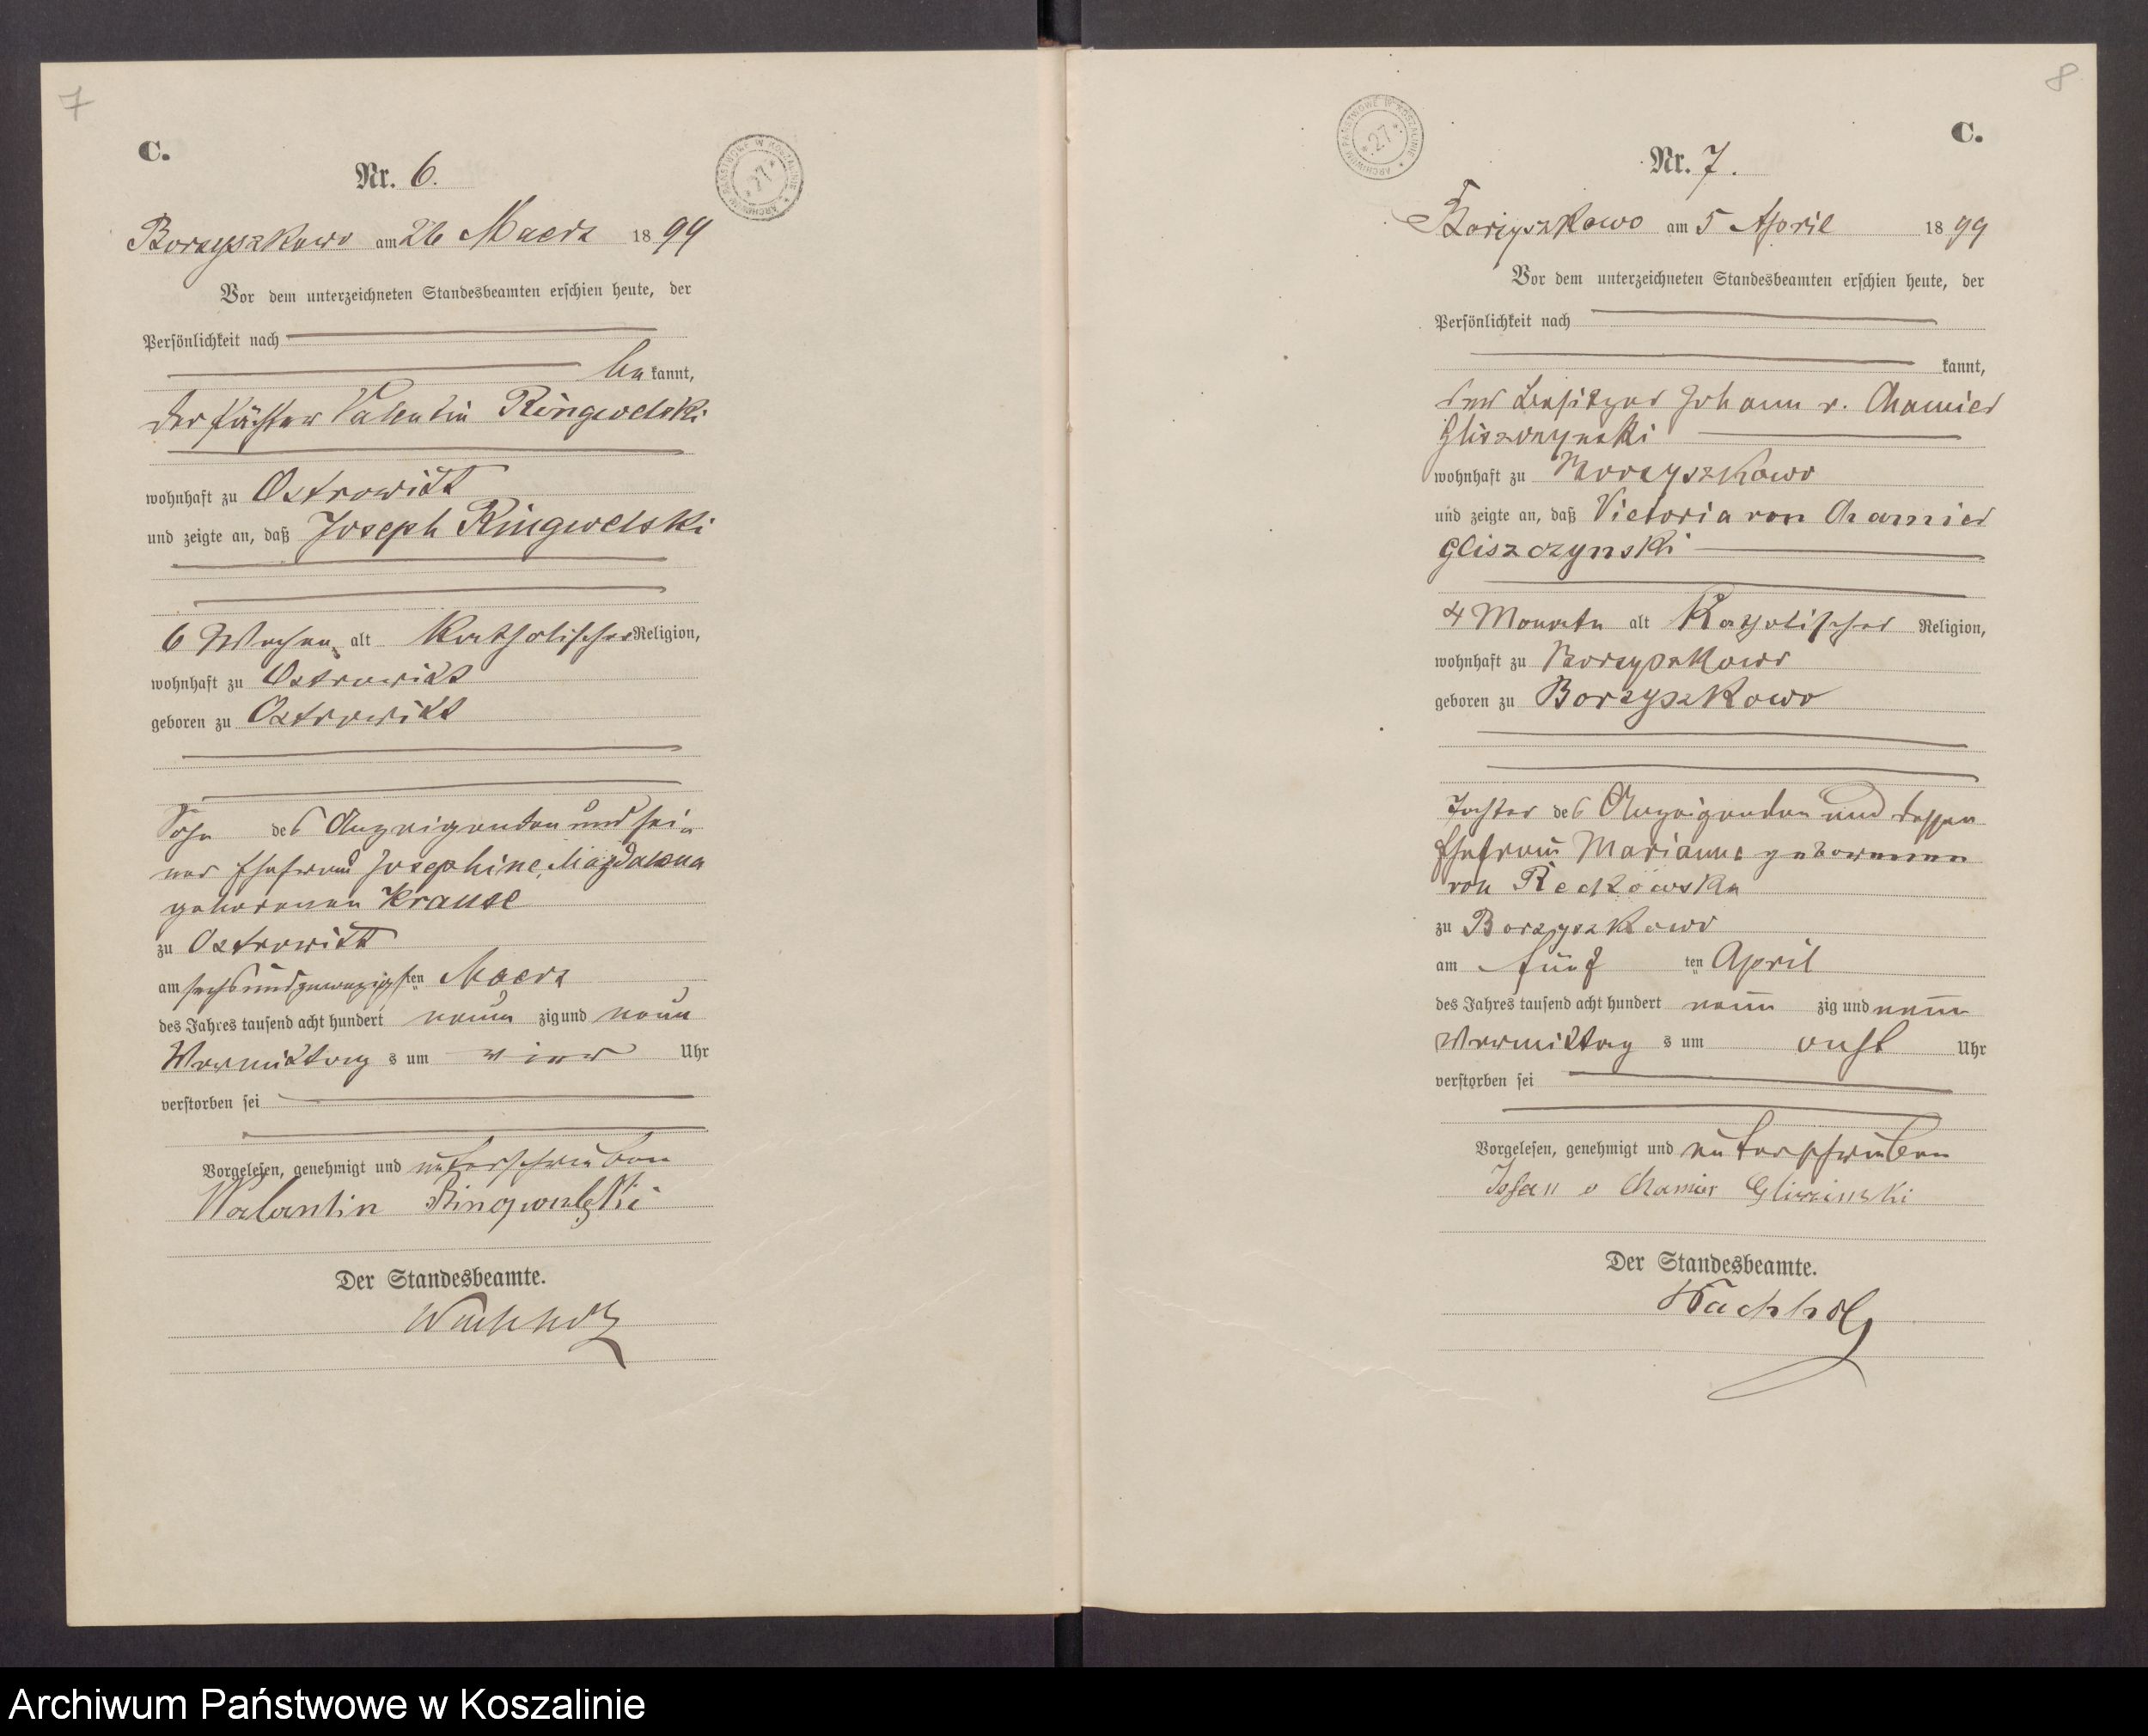 7
C.
Nr. 6.
ARCHIWUM PAŃSTWOWE W KOSZALINIE
27
Borzyszkowo am 26 Maerz 1899
Vor dem unterzeichneten Standesbeamten erschien heute, der
Persönlichkeit nach
bekannt,
der Pächter Valentin Ringwelski
wohnhaft zu Ostrowitt
und zeigte an, daß Joseph Ringwelski
6 Wochen alt Katholischer Religion,
wohnhaft zu Ostrowitt
geboren zu Ostrowitt
Sohn des Anzeigenden und sei-
ner Ehefrau Josephine, Magdalena
geborenen Krause
zu Ostrowitt
am sechsundzwanzigsten Maerz
des Jahres tausend acht hundert neun zig und neun
Vormittag s um vier Uhr
verstorben sei
Vorgelesen, genehmigt und unterschrieben
Valentin Ringwelski
Der Standesbeamte.
Wachholz
8
C.
Nr. 7.
ARCHIWUM PAŃSTWOWE W KOSZALINIE
27
Borzyszkowo am 5 April 1899
Vor dem unterzeichneten Standesbeamten erschien heute, der
Persönlichkeit nach
kannt,
der Besitzer Johann v. Chamier
Gliszczynski
wohnhaft zu Borzyszkowo
und zeigte an, daß Victoria von Chamier
Gliszczynski
4 Monate alt Katholischer Religion,
wohnhaft zu Borzyszkowo
geboren zu Borzyszkowo
Tochter des Anzeigenden und dessen
Ehefrau Marianna geborenen
von Reckowska
zu Borzyszkowo
am fünf ten April
des Jahres tausend acht hundert neun zig und neun
Vormittag s um acht Uhr
verstorben sei
Vorgelesen, genehmigt und unterschrieben
Johan v Chamier Gliszinski
Der Standesbeamte.
Wachholz
Archiwum Państwowe w Koszalinie